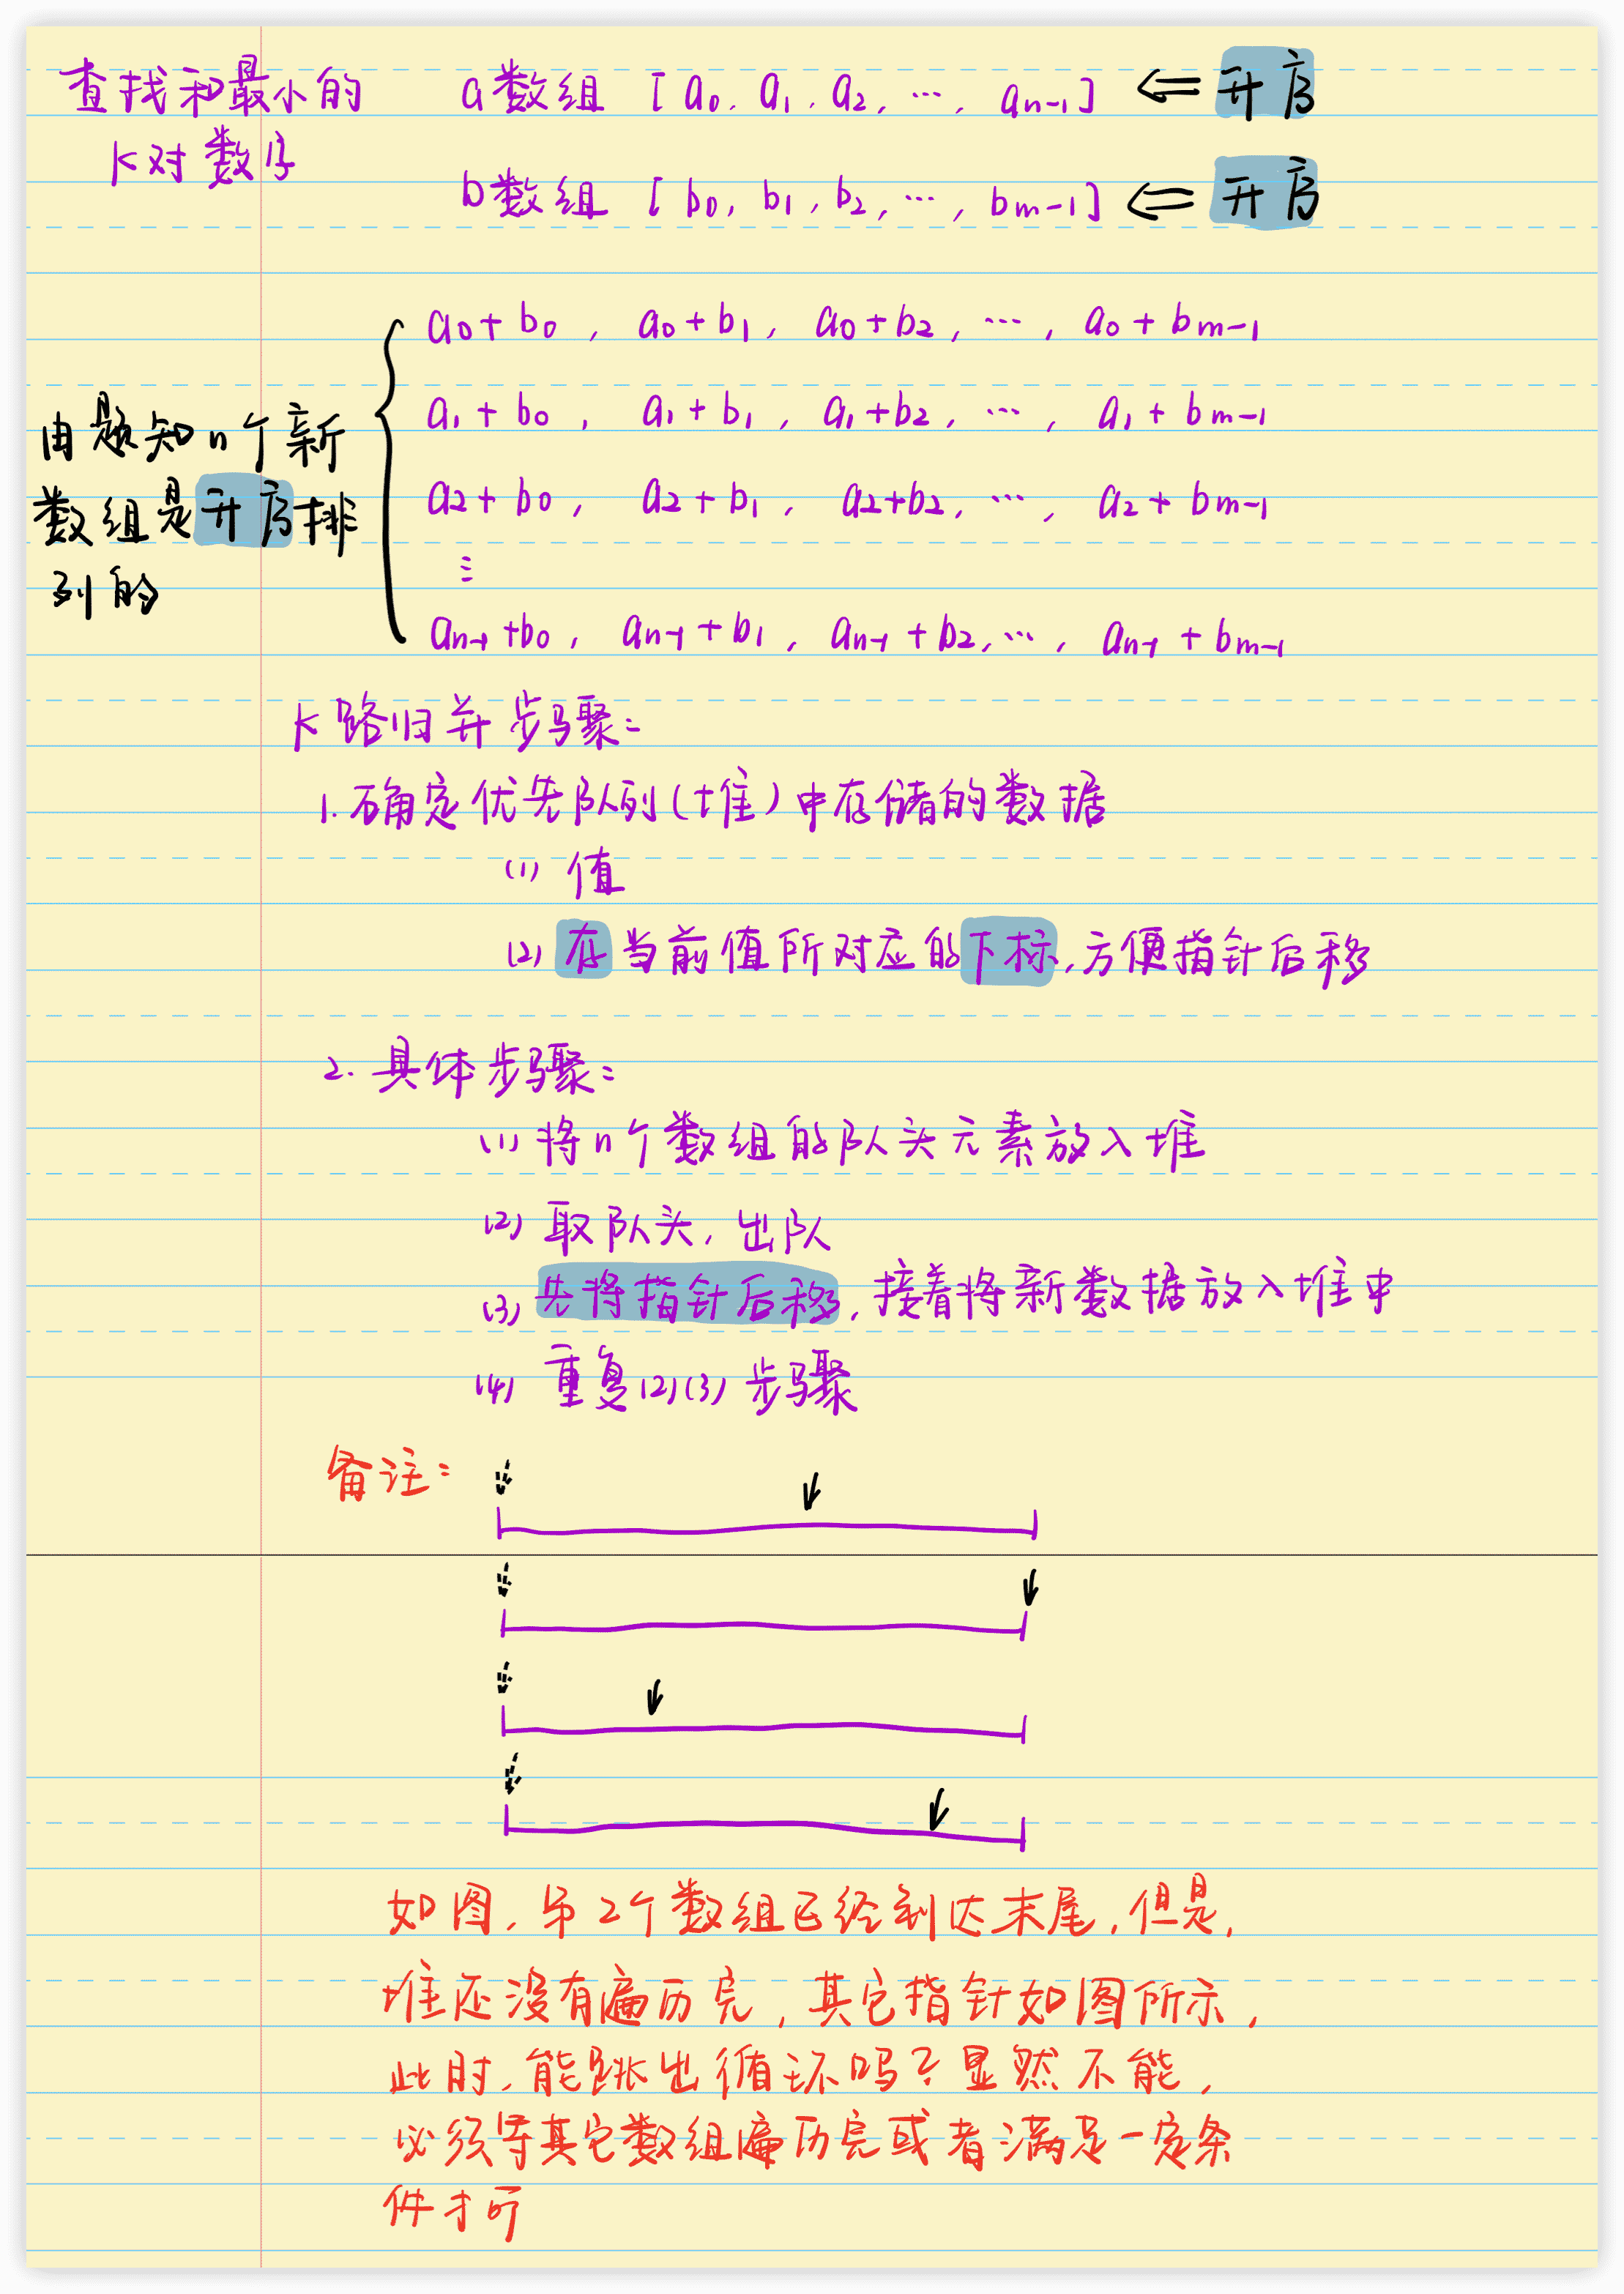 查找和最小的
K对数字
a数组 [a₀, a₁, a₂, ···, aₙ₋₁] ⇐ 升序
b数组 [b₀, b₁, b₂, ···, bₘ₋₁] ⇐ 升序
a₀+b₀, a₀+b₁, a₀+b₂, ···, a₀+bₘ₋₁
a₁+b₀, a₁+b₁, a₁+b₂, ···, a₁+bₘ₋₁
a₂+b₀, a₂+b₁, a₂+b₂, ···, a₂+bₘ₋₁
⋮
aₙ₋₁+b₀, aₙ₋₁+b₁, aₙ₋₁+b₂, ···, aₙ₋₁+bₘ₋₁
由题知n个新
数组是升序排
列的
K路归并步骤:
1. 确定优先队列(堆)中存储的数据
(1) 值
(2) 存当前值所对应的下标,方便指针后移
2. 具体步骤:
(1) 将n个数组的队头元素放入堆
(2) 取队头,出队
(3) 先将指针后移,接着将新数据放入堆中
(4) 重复(2)(3)步骤
备注:
如图,第2个数组已经到达末尾,但是,
堆还没有遍历完,其它指针如图所示,
此时,能跳出循环吗?显然不能,
必须等其它数组遍历完或者满足一定条
件才可